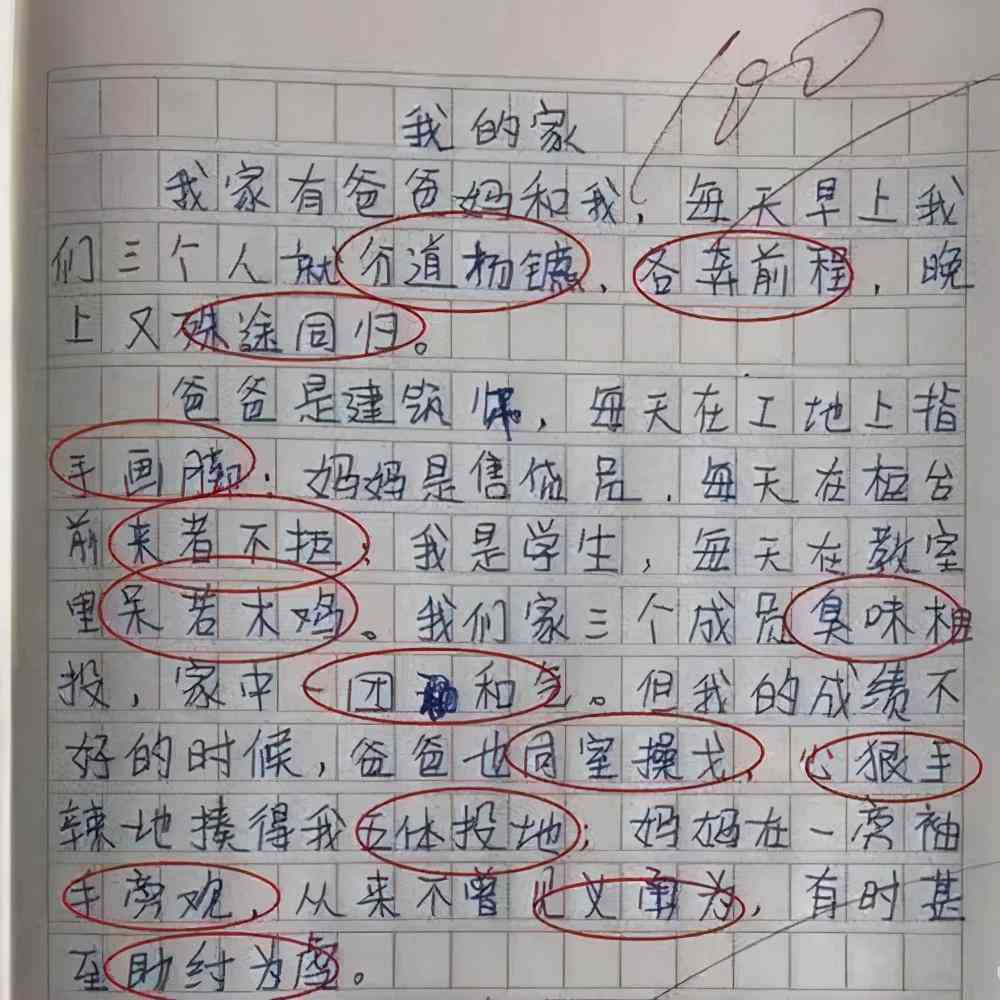 100
我的家
我家有爸爸妈和我，每天早上我
们三个人就分道扬镳、各奔前程，晚
上又殊途同归。
爸爸是建筑师，每天在工地上指
手画脚；妈妈是售货员，每天在柜台
前来者不拒；我是学生，每天在教室
里呆若木鸡。我们家三个成员臭味相
投，家中一团和气。但我的成绩不
好的时候，爸爸也同室操戈、心狠手
辣地揍得我五体投地；妈妈在一旁袖
手旁观，从来不曾见义勇为，有时甚
至助纣为虐。